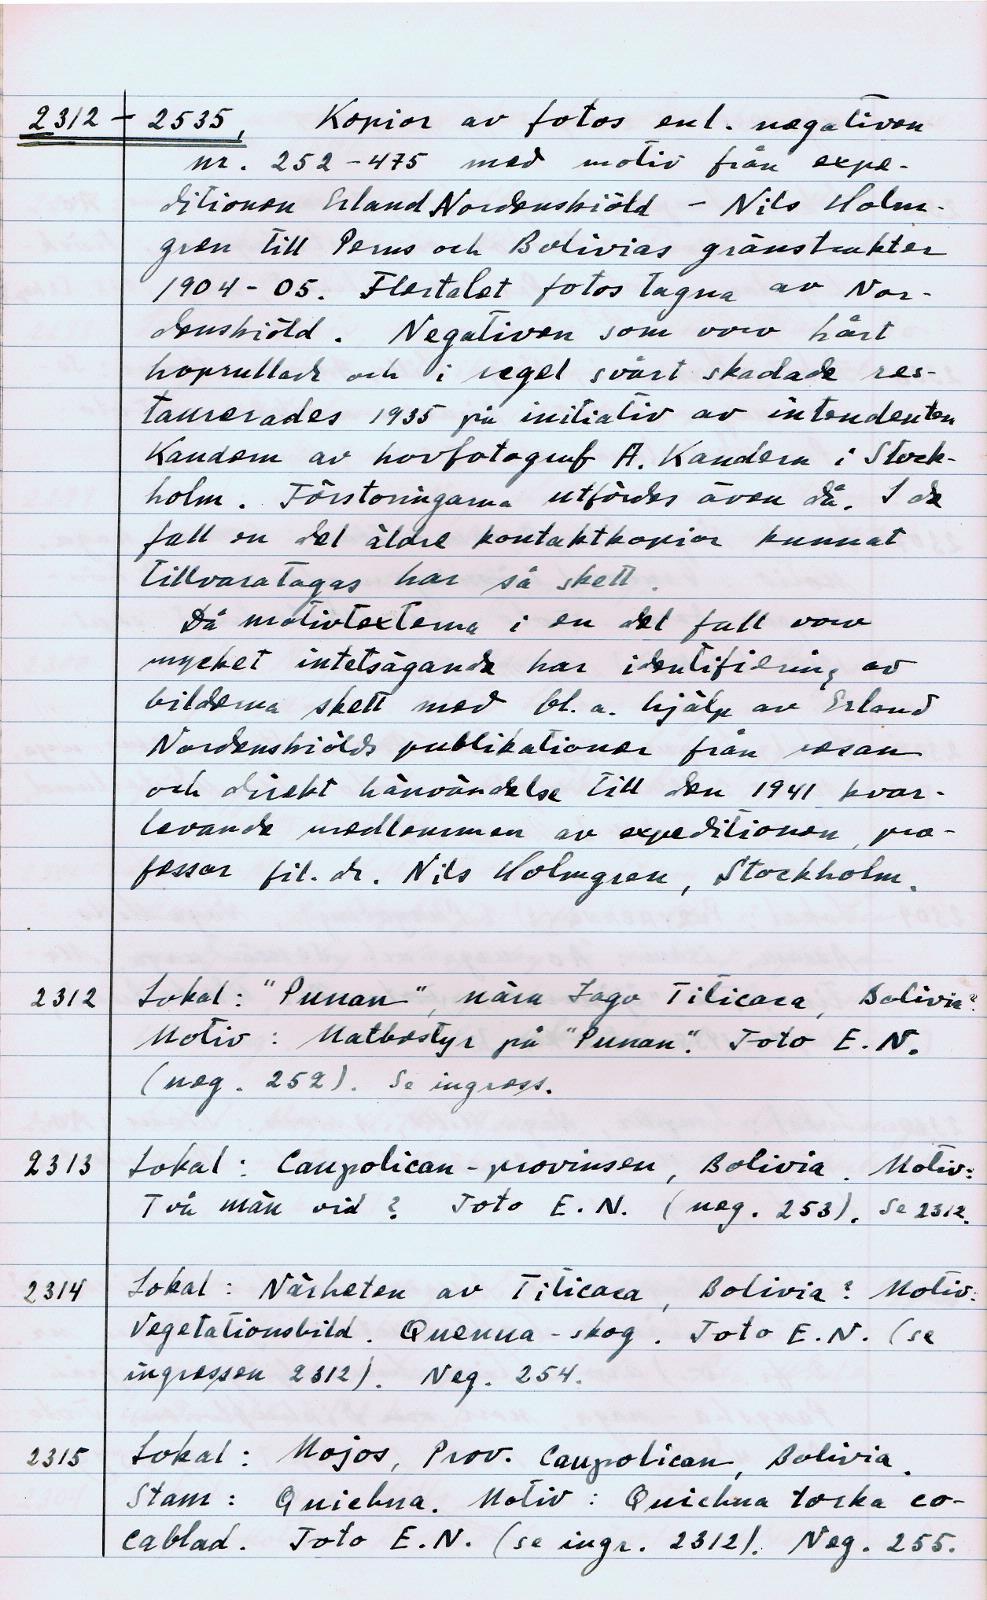 2312 - 2535, Kopior av fotos enl. negativen
nr. 252-475 med motiv från expe-
ditionen Erland Nordenskiöld - Nils Holm-
gren till Perus och Bolivias gränstrakter
1904-05. Flertalet fotos tagna av Nor-
denskiöld. Negativen som voro hårt
hoprullade och i regel svårt skadade res-
taurerades 1935 på initiativ av intendenten
Kaudern av hovfotograf A. Kaudern i Stock-
holm. Förstoringarna utfördes även då. I de
fall en del äldre kontaktkopior kunnat
tillvaratagas har så skett.
Då motivtexterna i en del fall voro
mycket intetsägande har identifiering av
bilderna skett med bl.a. hjälp av Erland
Nordenskiölds publikationer från resan
och direkt hänvändelse till den 1941 kvar-
levande medlemmen av expeditionen, pro-
fessor fil. dr. Nils Holmgren, Stockholm.
2312 Lokal: "Punan", nära Lago Titicaca, Bolivia?
Motiv: Matbestyr på "Punan". Foto E.N.
(neg. 252). Se ingress.
2313 Lokal: Caupolican-provinsen, Bolivia. Motiv:
Två män vid? Foto E.N. (neg. 253). Se 2312.
2314 Lokal: Närheten av Titicaca, Bolivia? Motiv:
Vegetationsbild. Quenua-skog. Foto E.N. (se
ingressen 2312). Neg. 254.
2315 Lokal: Mojos, Prov. Caupolican, Bolivia.
Stam: Quichua. Motiv: Quichua torka co-
cablad. Foto E.N. (se ingr. 2312). Neg. 255.